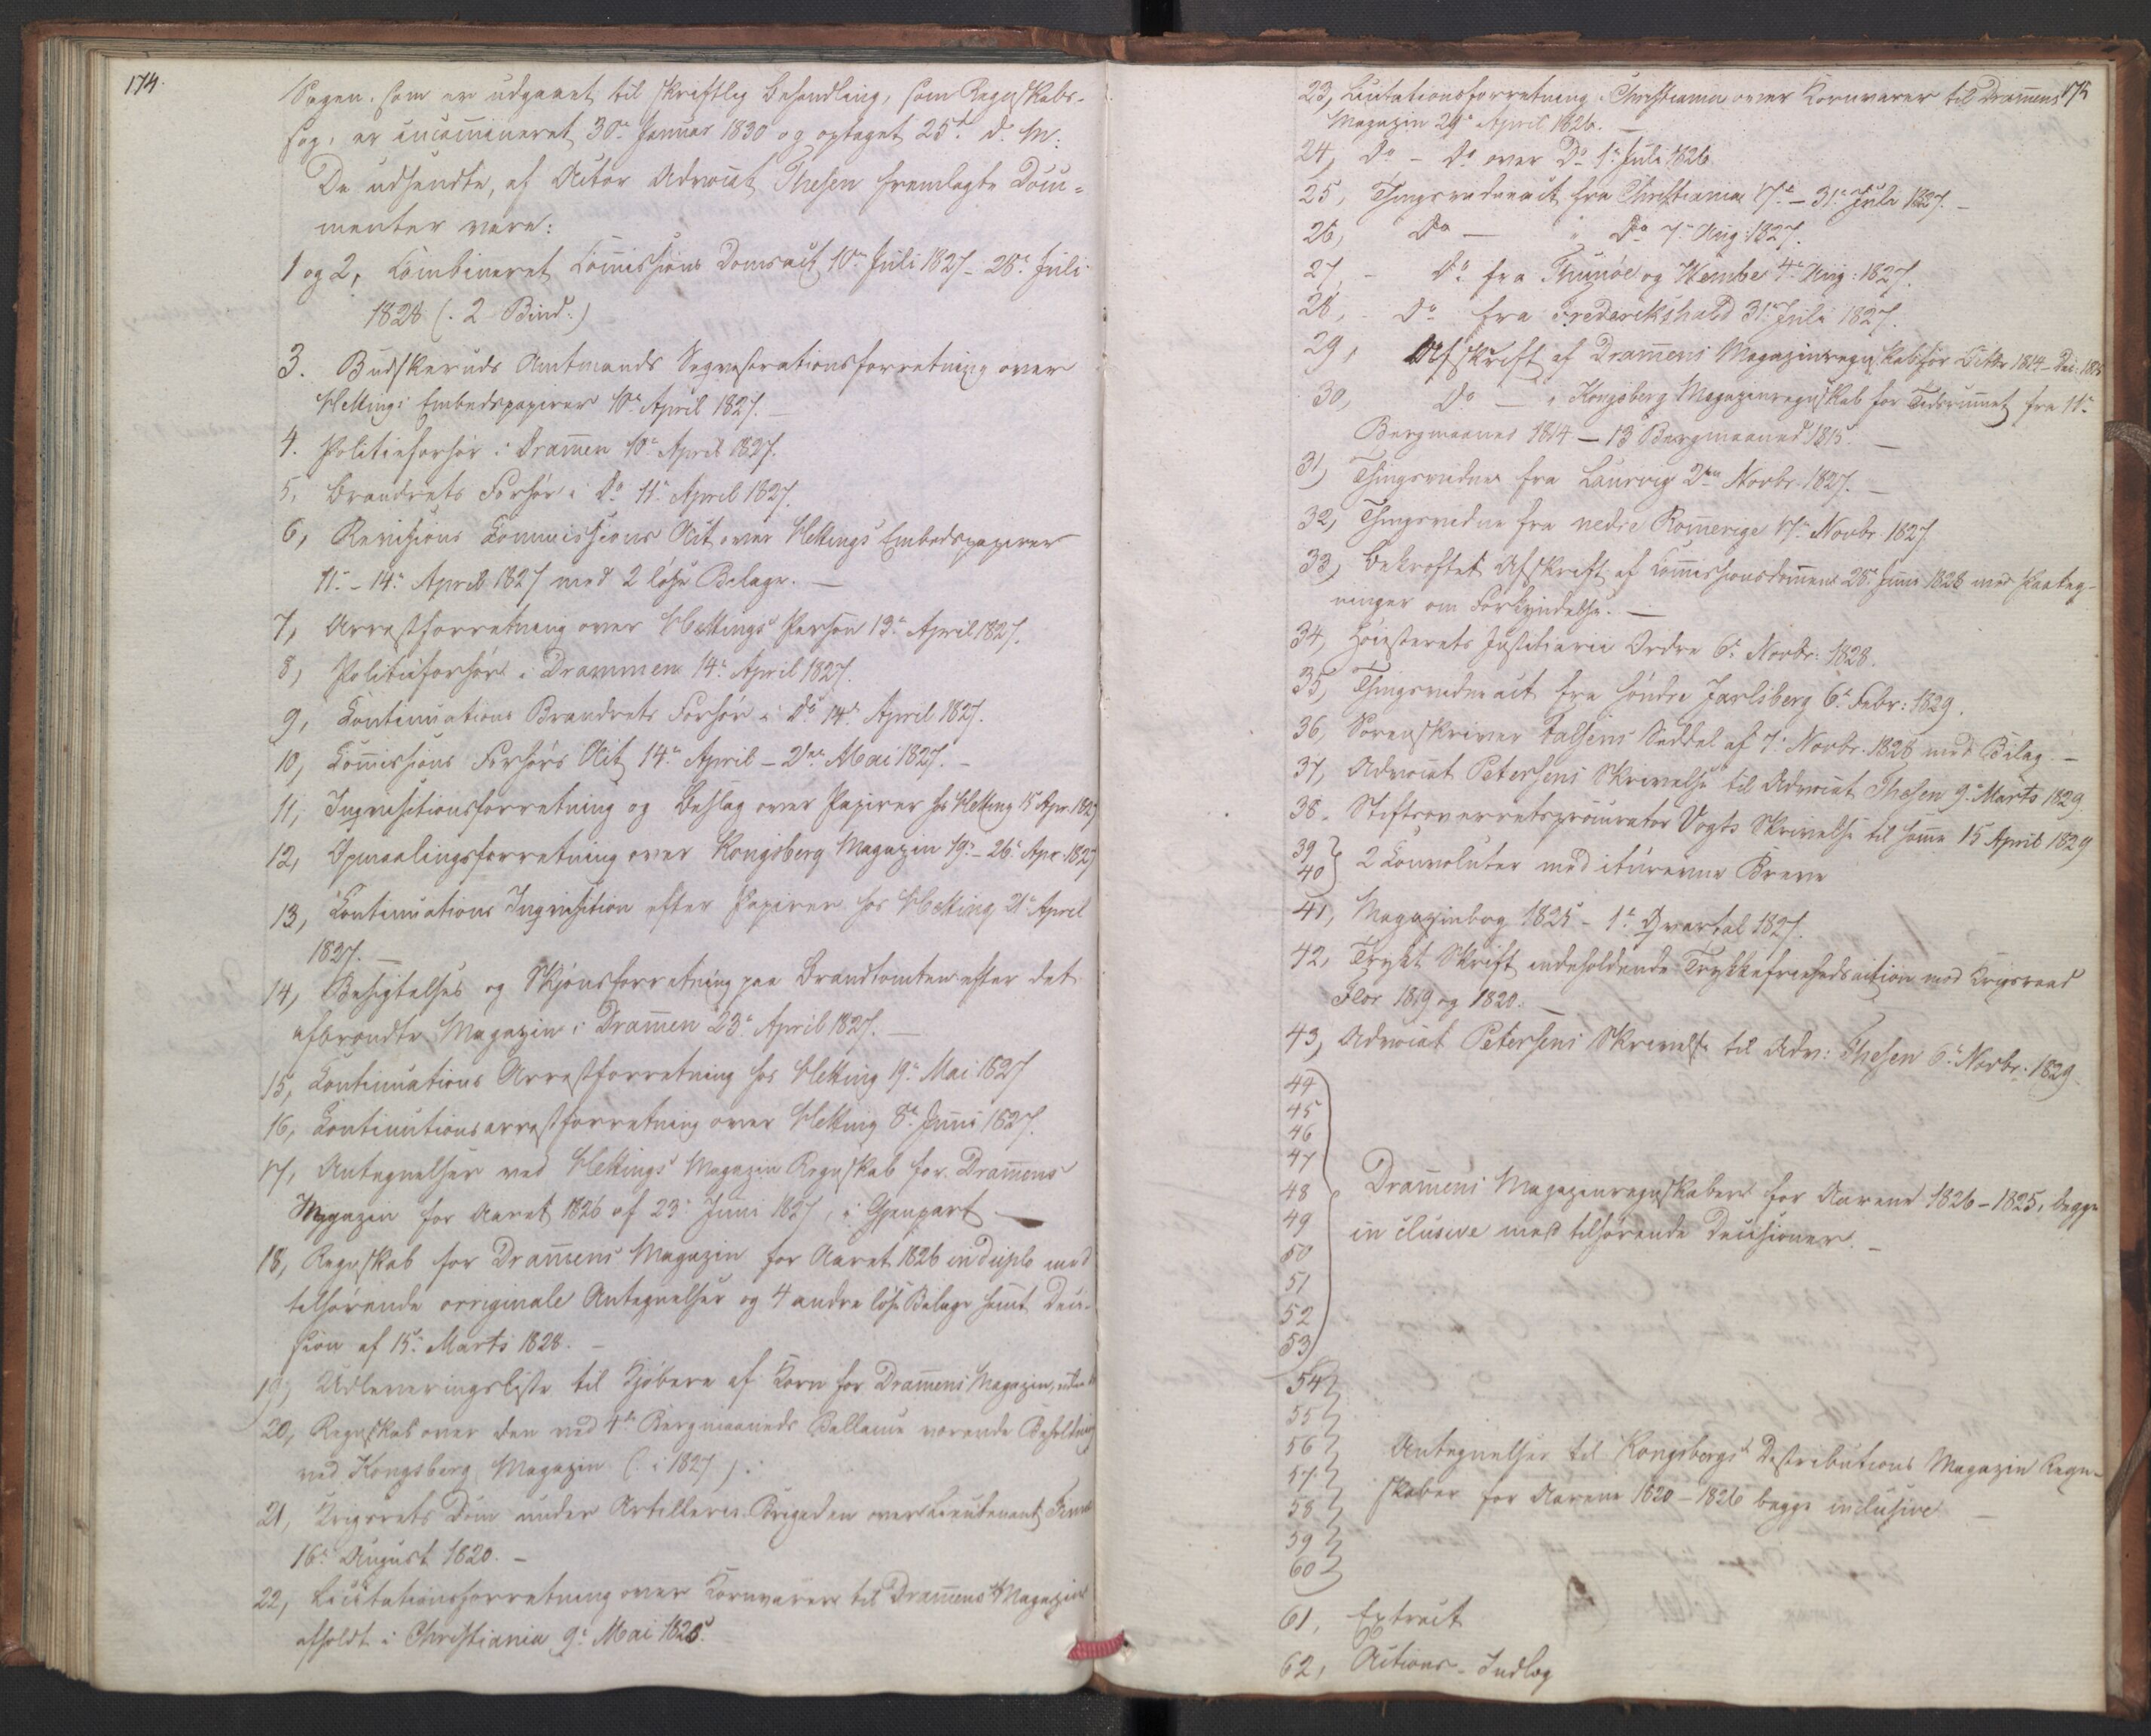 174.
Sagen, som er udgaaet til skriftlig Behandling, som Regnskabs-
sag, er incamineret 30te Januar 1830 og optaget 25d d. M.
De udsendte, af Actor Advocat Thesen fremlagte Docu-
menter vare:
1 og 2, Combineret Commissions Domsact 10de Juli 1827 - 28de Juli
1828 (: 2 Bind :)
3. Budskeruds Amtmands Seqvestrationsforretning over
Hettings Embedspapirer 10de April 1827. -
4. Politieforhør i Dramen 10de April 1827.
5, Brandrets Forhør i Do 11te April 1827.
6, Revisions Commissions Act over Hettings Embedspapirer
11te - 14de April 1827 med 2 løse Bilage. -
7, Arrestforretning over Hettings Person 13de April 1827.
8, Politieforhør i Drammen 14de April 1827.
9, Continuations Brandrets Forhør i Do 14de April 1827.
10, Commissions Forhørs Act 14de April - 2den Mai 1827. -
11, Inqvisitionsforretning og Beslag over Papirer hos Hetting 15 Apr. 1827
12, Opmaalingsforretning over Kongsberg Magazin 19de - 26de Apr. 1827
13, Continuations Inqvisition efter Papirer hos Hetting 21de April
1827. -
14, Besigtelses og Skjønsforretning paa Brandtomten efter det
afbrændte Magazin i Dramen 23de April 1827. -
15, Continuations Arrestforretning hos Hetting 19de Mai 1827
16, Continutionsarrestforretning over Hetting 8de Juni 1827.
17, Antegnelser ved Hettings Magazin Regnskab for Dramens
Magazin for Aaret 1826 af 23de Juni 1827, i Gjenpart -
18, Regnskab for Dramens Magazin for Aaret 1826 in duplo med
tilhørende originale Antegnelser og 4 andre løse Bilage samt Deci-
sion af 15de Marts 1828. -
19, Udleveringsliste til Kjøbere af Korn for Dramens Magazin,
20, Regnskab over den ved 4de Bergmaaneds Ballance værende Beholdning
ved Kongsberg Magazin (: i 1827 ):
21, Krigsrets Dom under Artilleri Brigaden over Lieutenant
16de August 1820. -
22, Licitationsforretning over Kornvarer til Dramens Magazin
afholdt i Christiania 9de Mai 1825.
175
23, Licitationsforretning i Christiania over Kornvarer til Dramens
Magazin 29de April 1826. -
24, Do - Do over Do 1ste Juli 1826
25, Thingsvidneact fra Christiania 17de - 31te Juli 1827. -
26, Do - " Do 7de Aug: 1827.
27, - Do fra Thunøe og Hembe 4de Aug: 1827.
28, - Do fra Frederikshald 31te Juli 1827.
29, Afskrift af Dramens Magazinregnskab for Octbr 1814 - Dec: 1815
30, Do - " Kongsberg Magazinregnskab for Tidsrummet fra 11te
Bergmaaned 1814 - 13 Bergmaaned 1815. -
31, Thingsvidne fra Laurvig 2den Novbr. 1827. -
32, Thingsvidne fra nedre Romerige 17de Novbr. 1827
33, Bekræftet Afskrift af Commissionsdommen 28de Juni 1828 med Paateg-
ninger om Forkyndelse. -
34, Høiesterets Justitiarii Ordre 6te Novbr: 1828.
35, Thingsvidneact fra søndre Jarlsberg 6te Febr: 1829.
36, Sorenskriver Falsens Seddel af 7de Novbr. 1828 med Bilag. -
37, Advocat Petersens Skrivelse til Advocat Thesen 9de Marts 1829.
38. Stiftsoverretsprocurator Vogts Skrivelse til samme 15 April 1829
39
40 } 2 Convoluter med iturevne Breve
41, Magazinbog 1825 - 1ste Qvartal 1827.
42, Trykt Skrift indeholdende Trykkefrihedsaction mod Krigsraad
Flor 1819 og 1820. -
43, Advocat Petersens Skrivelse til Adv: Thesen 6te Novbr. 1829.
44
45
46
47
48 Dramens Magazinregnskaber for Aarene 1826 - 1825, begge
49 inclusive med tilhørende Decisioner. -
50
51
52
53
54
55
56 Antegnelser til Kongsbergs Destributions Magazin Regn-
57 skaber for Aarene 1820 - 1826 begge inclusive -
58
59
60
61, Extract
62, Actions-Indlæg